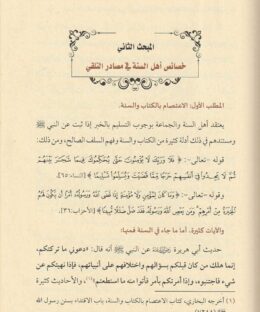 المبحث الثاني
خصائص أهل السنة في مصادر التلقي
المطلب الأول: الاعتصام بالكتاب والسنة.
يعتقد أهل السنة والجماعة بوجوب التسليم بالخبر إذا ثبت عن النبي ﷺ
ومستندهم في ذلك أدلة كثيرة من الكتاب والسنة وفهم السلف الصالح، ومن ذلك:
قوله -تعالى-: ﴿فَلَا وَرَبِّكَ لَا يُؤْمِنُونَ حَتَّىٰ يُحَكِّمُوكَ فِيمَا شَجَرَ بَيْنَهُمْ
ثُمَّ لَا يَجِدُوا فِي أَنْفُسِهِمْ حَرَجًا مِمَّا قَضَيْتَ وَيُسَلِّمُوا تَسْلِيمًا﴾ [النساء:٦٥].
وقوله -تعالى-: ﴿وَمَا كَانَ لِمُؤْمِنٍ وَلَا مُؤْمِنَةٍ إِذَا قَضَى اللَّهُ وَرَسُولُهُ أَمْرًا أَنْ يَكُونَ لَهُمُ
الْخِيَرَةُ مِنْ أَمْرِهِمْ وَمَنْ يَعْصِ اللَّهَ وَرَسُولَهُ فَقَدْ ضَلَّ ضَلَالًا مُبِينًا﴾ [الأحزاب:٣٦].
والآيات كثيرة. أما ما جاء في السنة فمنها:
حديث أبي هريرة عن النبي ﷺ أنه قال: «دعوني ما تركتكم،
إنما هلك من كان قبلكم بسؤالهم واختلافهم على أنبيائهم، فإذا نهيتكم عن
شيء فاجتنبوه، وإذا أمرتكم بأمر فأتوا منه ما استطعتم»(١)، والأحاديث كثيرة
(١) أخرجه البخاري، كتاب الاعتصام بالكتاب والسنة، باب الاقتداء بسنن رسول الله